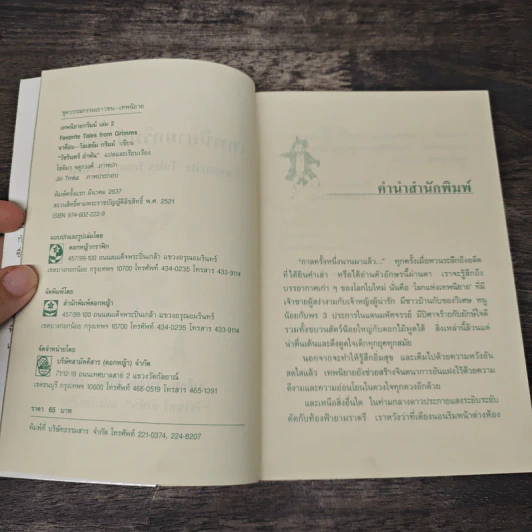 ชุดวรรณกรรมเยาวชน-เทพนิยาย
เทพนิยายกริมม์ เล่ม 2
Favorite Tales from Grimms
จาค็อบ-วิลเฮล์ม กริมม์ เขียน
"วัชรินทร์ อำพัน" แปลและเรียบเรียง
โชติมา จตุรวงค์ ภาพปก
Jiri Trnka ภาพประกอบ
พิมพ์ครั้งแรก มีนาคม 2537
สงวนลิขสิทธิ์ตามพระราชบัญญัติลิขสิทธิ์ พ.ศ. 2521
ISBN 974-602-222-9
แบบปกและรูปเล่มโดย
ดอกหญ้ากราฟิก
457/99-100 ถนนสมเด็จพระปิ่นเกล้า แขวงอรุณอมรินทร์
เขตบางกอกน้อย กรุงเทพฯ 10700 โทรศัพท์ 434-0235 โทรสาร 433-9114
จัดพิมพ์โดย
สำนักพิมพ์ดอกหญ้า
457/99-100 ถนนสมเด็จพระปิ่นเกล้า แขวงอรุณอมรินทร์
เขตบางกอกน้อย กรุงเทพฯ 10700 โทรศัพท์ 434-0235 โทรสาร 433-9114
จัดจำหน่ายโดย
บริษัทสามัคคีสาร (ดอกหญ้า) จำกัด
71/12-19 ถนนเทศบาลสาย 2 แขวงวัดกัลยาณ์
เขตธนบุรี กรุงเทพฯ 10600 โทรศัพท์ 466-0519 โทรสาร 465-1391
ราคา 65 บาท
พิมพ์ที่ บริษัทธรรมสาร จำกัด โทรศัพท์ 221-0374, 224-8207
คำนำสำนักพิมพ์
"กาลครั้งหนึ่งนานมาแล้ว..." ทุกครั้งเมื่อหวนระลึกถึงอดีต
ที่ได้ยินคำเล่า หรือได้อ่านตัวอักษรนี้ผ่านตา เราจะรู้สึกถึง
บรรยากาศเก่า ๆ ของโลกใบใหม่ นั่นคือ 'โลกแห่งเทพนิยาย' ที่มี
เจ้าชายผู้สง่างามกับเจ้าหญิงผู้น่ารัก มีชาวบ้านกับของวิเศษ หนู
น้อยกับพร 3 ประการในแดนมหัศจรรย์ มีปีศาจร้ายกับยักษ์ใจดี
รวมทั้งขบวนสัตว์น้อยใหญ่กับดอกไม้พูดได้ สิ่งเหล่านี้ล้วนแต่
น่าตื่นเต้นและดึงดูดใจเด็กทุกยุคทุกสมัย
นอกจากจะทำให้รู้สึกอิ่มสุข และเต็มไปด้วยความหวังอัน
สดใสแล้ว เทพนิยายยังช่วยสร้างจินตนาการอันแฝงไว้ด้วยความ
ดีงามและความอ่อนโยนในดวงใจทุกดวงอีกด้วย
และเหนือสิ่งอื่นใด ในท่ามกลางดาวประกายแสงระยิบระยับ
ตัดกับท้องฟ้ายามราตรี เราหวังว่าที่เตียงนอนริมหน้าต่างห้อง